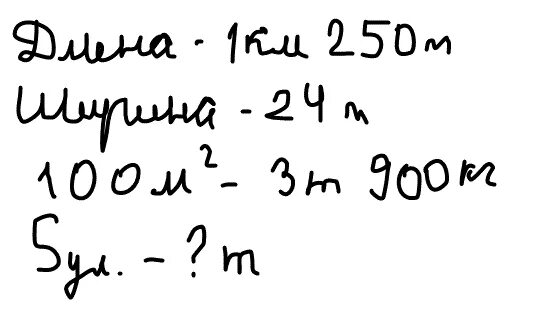 Длина - 1км 250м
Ширина - 24 м
100м² - 3т 900кг
5ул. - ? т